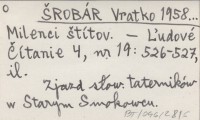 o ŠROBÁR Vratko 1958...
Milenci štítov. – Ľudové
Čítanie 4, nr 19: 526-527,
il.
Zjazd słow. taterników
w Starym Smokowcu.